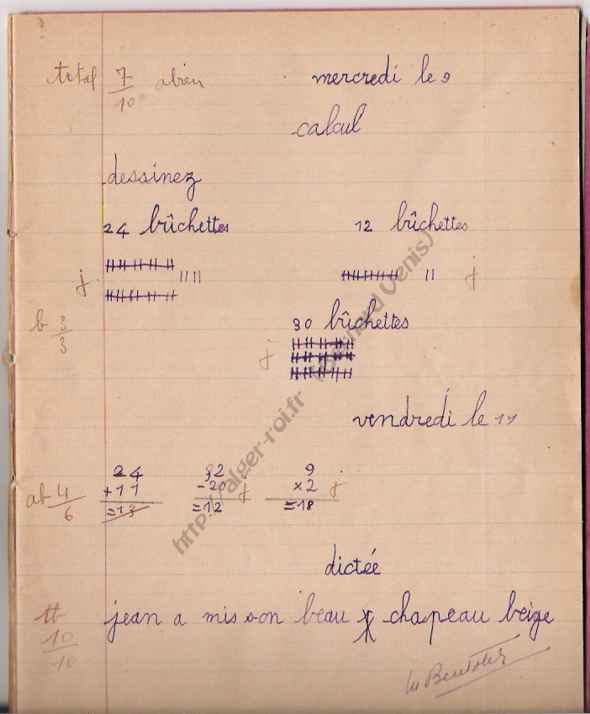 total 7/10 abien mercredi le 9
calcul
dessinez
24 bûchettes 12 bûchettes
j j
b 3/3 30 bûchettes
j
vendredi le 11
24 32 9
ab 4/6 +11 -20 j ×2 j
=13 =12 =18
dictée
tb 10/10 jean a mis son beau chapeau beige
http://alger-roi.fr